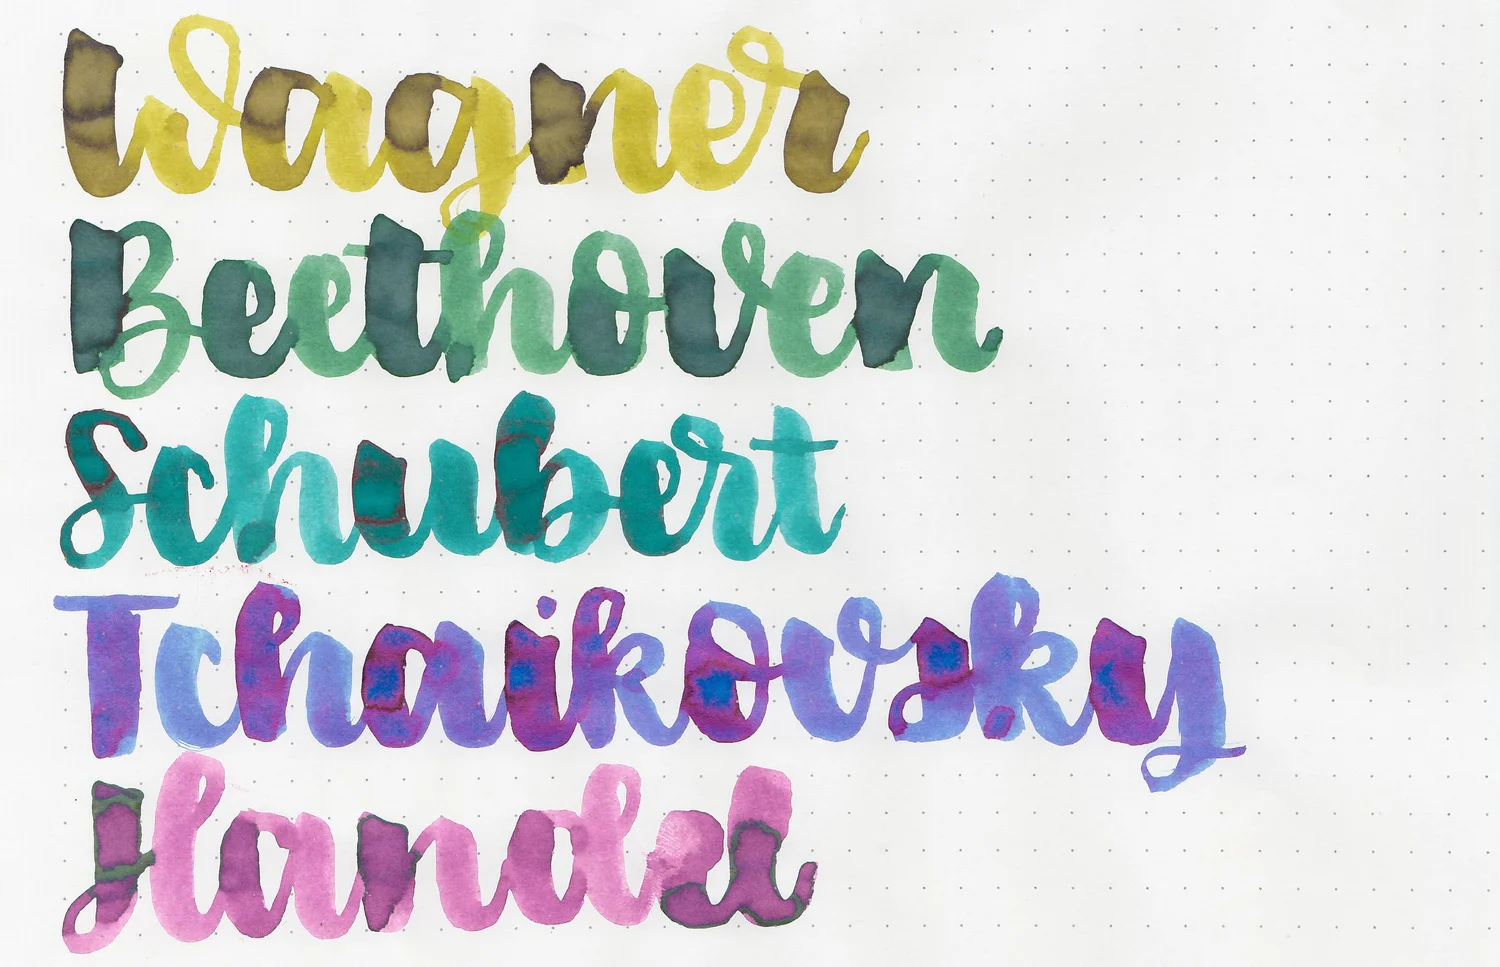 Wagner
Beethoven
Schubert
Tchaikovsky
Handel